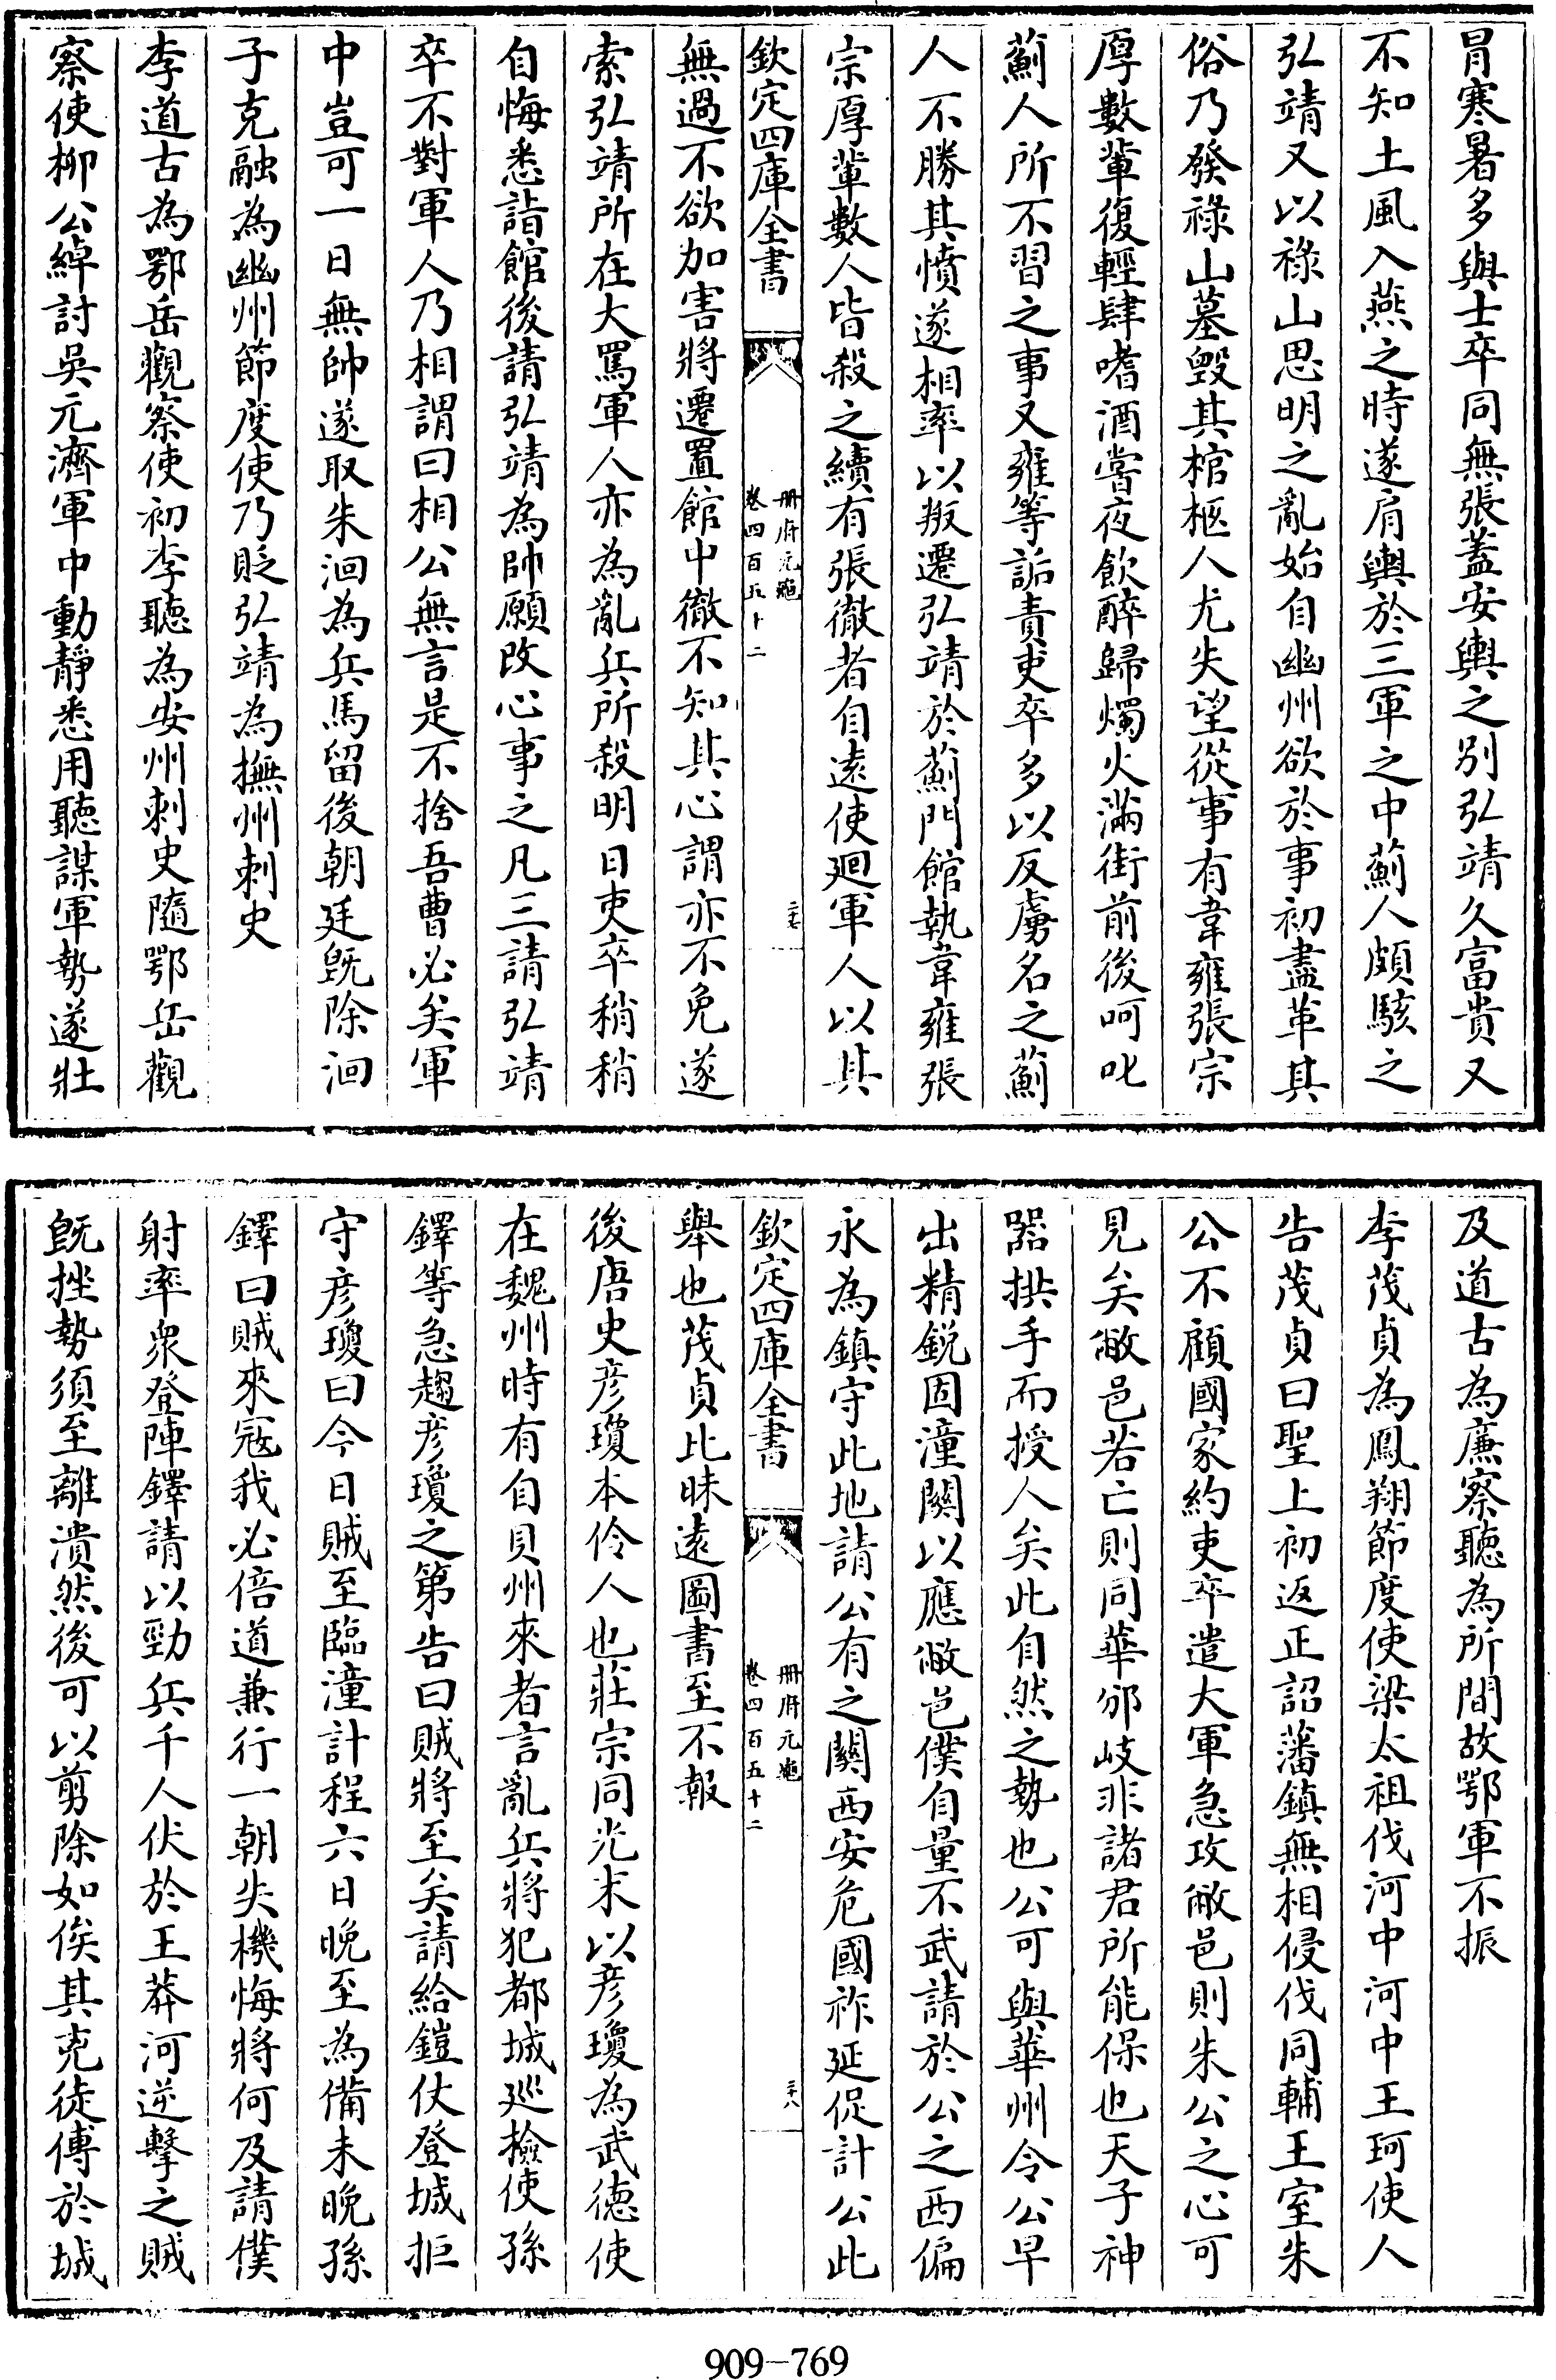 冐寒暑多與士卒同無張蓋安輿之別弘靖久富貴又
不知土風入燕之時遂肩輿於三軍之中薊人頗駭之
弘靖又以祿山思明之亂始自幽州欲於事初盡革其
俗乃發祿山墓毀其棺柩人尤失望從事有韋雍張宗
厚數輩復輕肆嗜酒嘗夜飲醉歸燭火滿街前後呵叱
薊人所不習之事又雍等詬責吏卒多以反虜名之薊
人不勝其憤遂相率以叛遷弘靖於薊門館執韋雍張
宗厚輩數人皆殺之續有張徹者自遠使廻軍人以其
欽定四庫全書
冊府元龜
卷四百五十二
三七
無過不欲加害將遷置館中徹不知其心謂亦不免遂
索弘靖所在大罵軍人亦為亂兵所殺明日吏卒稍稍
自悔悉詣館後請弘靖為帥願改心事之凡三請弘靖
卒不對軍人乃相謂曰相公無言是不捨吾曹必矣軍
中豈可一日無帥遂取朱洄為兵馬留後朝廷旣除洄
子克融為幽州節度使乃貶弘靖為撫州刺史
李道古為鄂岳觀察使初李聽為安州刺史隨鄂岳觀
察使柳公綽討吳元濟軍中動靜悉用聽謀軍勢遂壯
及道古為廉察聽為所間故鄂軍不振
李茂貞為鳳翔節度使梁太祖伐河中河中王珂使人
告茂貞曰聖上初返正詔藩鎮無相侵伐同輔王室朱
公不顧國家約吏卒遣大軍急攻敝邑則朱公之心可
見矣敝邑若亡則同華邠岐非諸君所能保也天子神
器拱手而授人矣此自然之勢也公可與華州令公早
出精銳固潼關以應敝邑僕自量不武請於公之西偏
永為鎮守此地請公有之關西安危國祚延促計公此
欽定四庫全書
冊府元龜
卷四百五十二
三八
舉也茂貞比昧遠圖書至不報
後唐史彦瓊本伶人也莊宗同光末以彦瓊為武德使
在魏州時有自貝州來者言亂兵將犯都城廵檢使孫
鐸等急趨彦瓊之第告曰賊將至矣請給鎧仗登城拒
守彦瓊曰今日賊至臨潼計程六日晚至為備未晚孫
鐸曰賊來冦我必倍道兼行一朝失機悔將何及請僕
射率衆登陴鐸請以勁兵千人伏於王莽河逆擊之賊
旣挫勢須至離潰然後可以剪除如俟其克徒傅於城
909-769